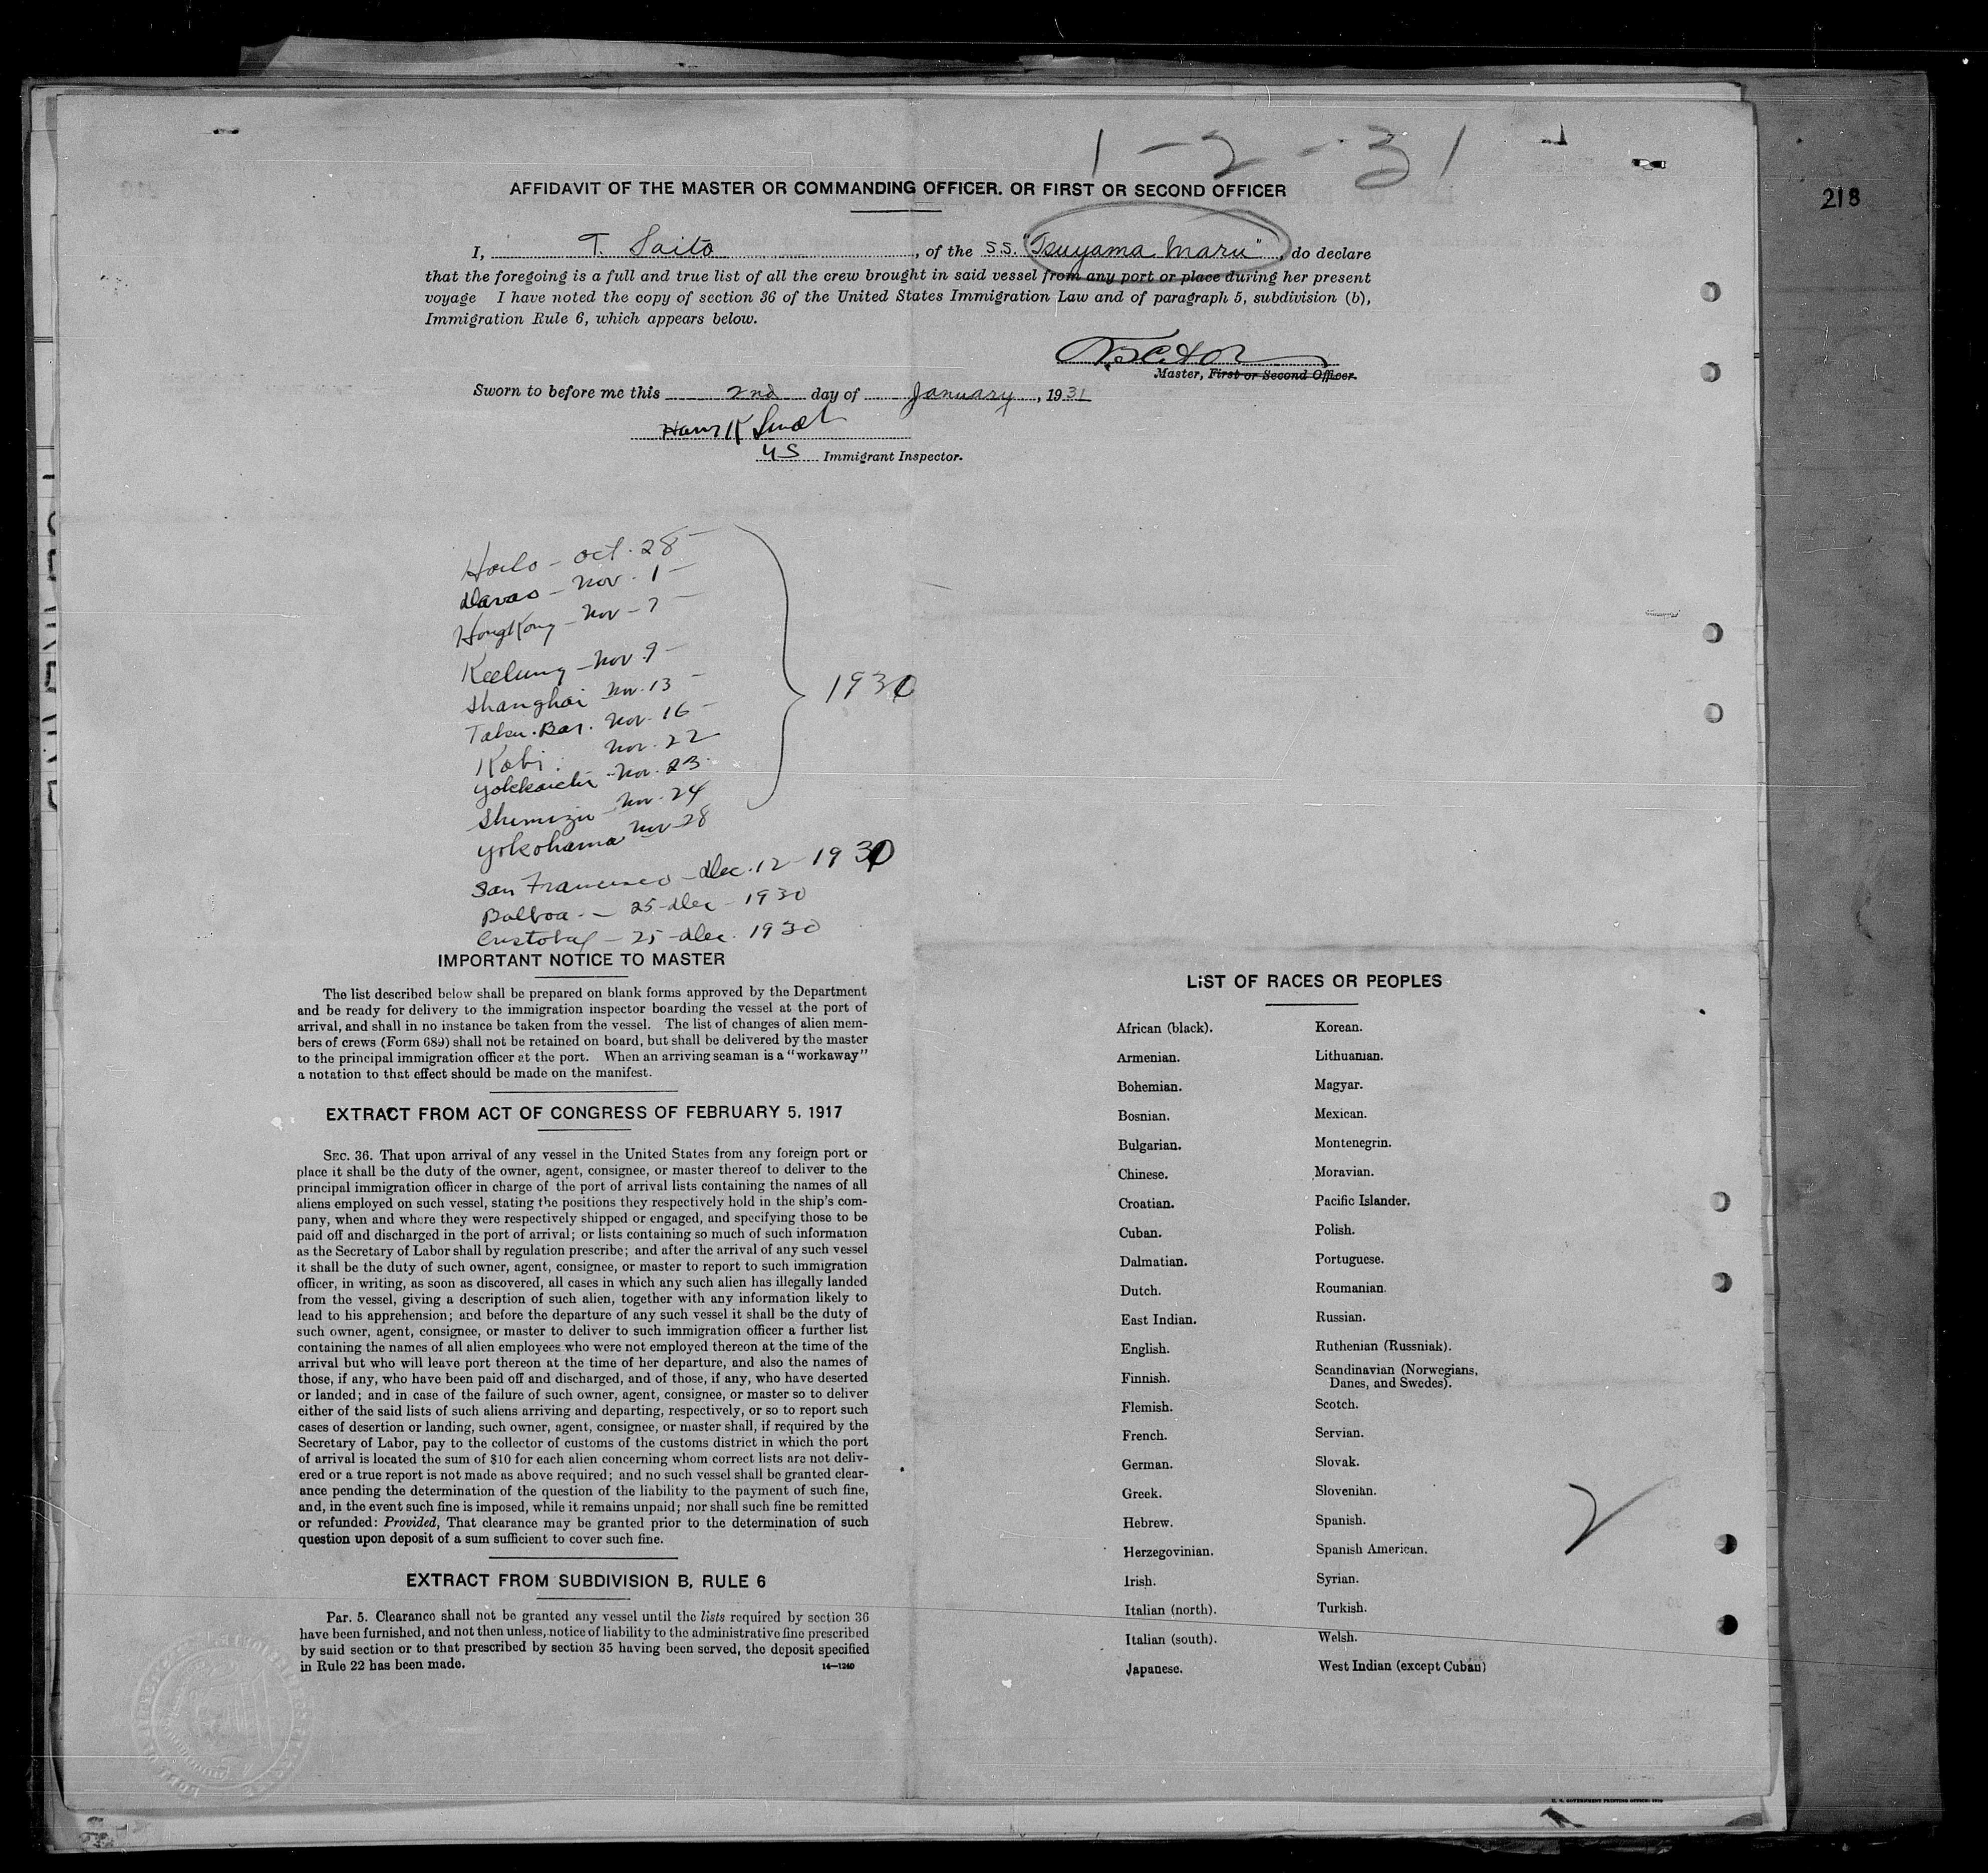 1-2-31
218
AFFIDAVIT OF THE MASTER OR COMMANDING OFFICER. OR FIRST OR SECOND OFFICER
I, T. Saito, of the S.S. "Tsuyama Maru", do declare
that the foregoing is a full and true list of all the crew brought in said vessel from any port or place during her present
voyage I have noted the copy of section 36 of the United States Immigration Law and of paragraph 5, subdivision (b),
Immigration Rule 6, which appears below.
Master, First or Second Officer.
Sworn to before me this 2nd day of January, 1931
US Immigrant Inspector.
Iloilo - Oct. 28 -
Davao - Nov. 1 -
HongKong - Nov - 7 -
Keelung - Nov. 9 -
Shanghai Nov. 13 -
Taku. Bar. Nov. 16 -
Kobi. Nov. 22
Yokkaichi - Nov. 23.
Shimizu - Nov. 24
Yokohama Nov - 28
1930
San Francisco - Dec. 12 - 1930
Balboa - - 25 - Dec - 1930
Cristobal - 25 - Dec. 1930
IMPORTANT NOTICE TO MASTER
The list described below shall be prepared on blank forms approved by the Department
and be ready for delivery to the immigration inspector boarding the vessel at the port of
arrival, and shall in no instance be taken from the vessel. The list of changes of alien mem-
bers of crews (Form 689) shall not be retained on board, but shall be delivered by the master
to the principal immigration officer at the port. When an arriving seaman is a "workaway"
a notation to that effect should be made on the manifest.
EXTRACT FROM ACT OF CONGRESS OF FEBRUARY 5, 1917
SEC. 36. That upon arrival of any vessel in the United States from any foreign port or
place it shall be the duty of the owner, agent, consignee, or master thereof to deliver to the
principal immigration officer in charge of the port of arrival lists containing the names of all
aliens employed on such vessel, stating the positions they respectively hold in the ship's com-
pany, when and where they were respectively shipped or engaged, and specifying those to be
paid off and discharged in the port of arrival; or lists containing so much of such information
as the Secretary of Labor shall by regulation prescribe; and after the arrival of any such vessel
it shall be the duty of such owner, agent, consignee, or master to report to such immigration
officer, in writing, as soon as discovered, all cases in which any such alien has illegally landed
from the vessel, giving a description of such alien, together with any information likely to
lead to his apprehension; and before the departure of any such vessel it shall be the duty of
such owner, agent, consignee, or master to deliver to such immigration officer a further list
containing the names of all alien employees who were not employed thereon at the time of the
arrival but who will leave port thereon at the time of her departure, and also the names of
those, if any, who have been paid off and discharged, and of those, if any, who have deserted
or landed; and in case of the failure of such owner, agent, consignee, or master so to deliver
either of the said lists of such aliens arriving and departing, respectively, or so to report such
cases of desertion or landing, such owner, agent, consignee, or master shall, if required by the
Secretary of Labor, pay to the collector of customs of the customs district in which the port
of arrival is located the sum of $10 for each alien concerning whom correct lists are not deliv-
ered or a true report is not made as above required; and no such vessel shall be granted clear-
ance pending the determination of the question of the liability to the payment of such fine,
and, in the event such fine is imposed, while it remains unpaid; nor shall such fine be remitted
or refunded: Provided, That clearance may be granted prior to the determination of such
question upon deposit of a sum sufficient to cover such fine.
EXTRACT FROM SUBDIVISION B, RULE 6
Par. 5. Clearance shall not be granted any vessel until the lists required by section 36
have been furnished, and not then unless, notice of liability to the administrative fine prescribed
by said section or to that prescribed by section 35 having been served, the deposit specified
in Rule 22 has been made.
14-1240
LIST OF RACES OR PEOPLES
African (black).
Armenian.
Bohemian.
Bosnian.
Bulgarian.
Chinese.
Croatian.
Cuban.
Dalmatian.
Dutch.
East Indian.
English.
Finnish.
Flemish.
French.
German.
Greek.
Hebrew.
Herzegovinian.
Irish.
Italian (north).
Italian (south).
Japanese.
Korean.
Lithuanian.
Magyar.
Mexican.
Montenegrin.
Moravian.
Pacific Islander.
Polish.
Portuguese.
Roumanian.
Russian.
Ruthenian (Russniak).
Scandinavian (Norwegians,
Danes, and Swedes).
Scotch.
Servian.
Slovak.
Slovenian.
Spanish.
Spanish American.
Syrian.
Turkish.
Welsh.
West Indian (except Cuban)
2